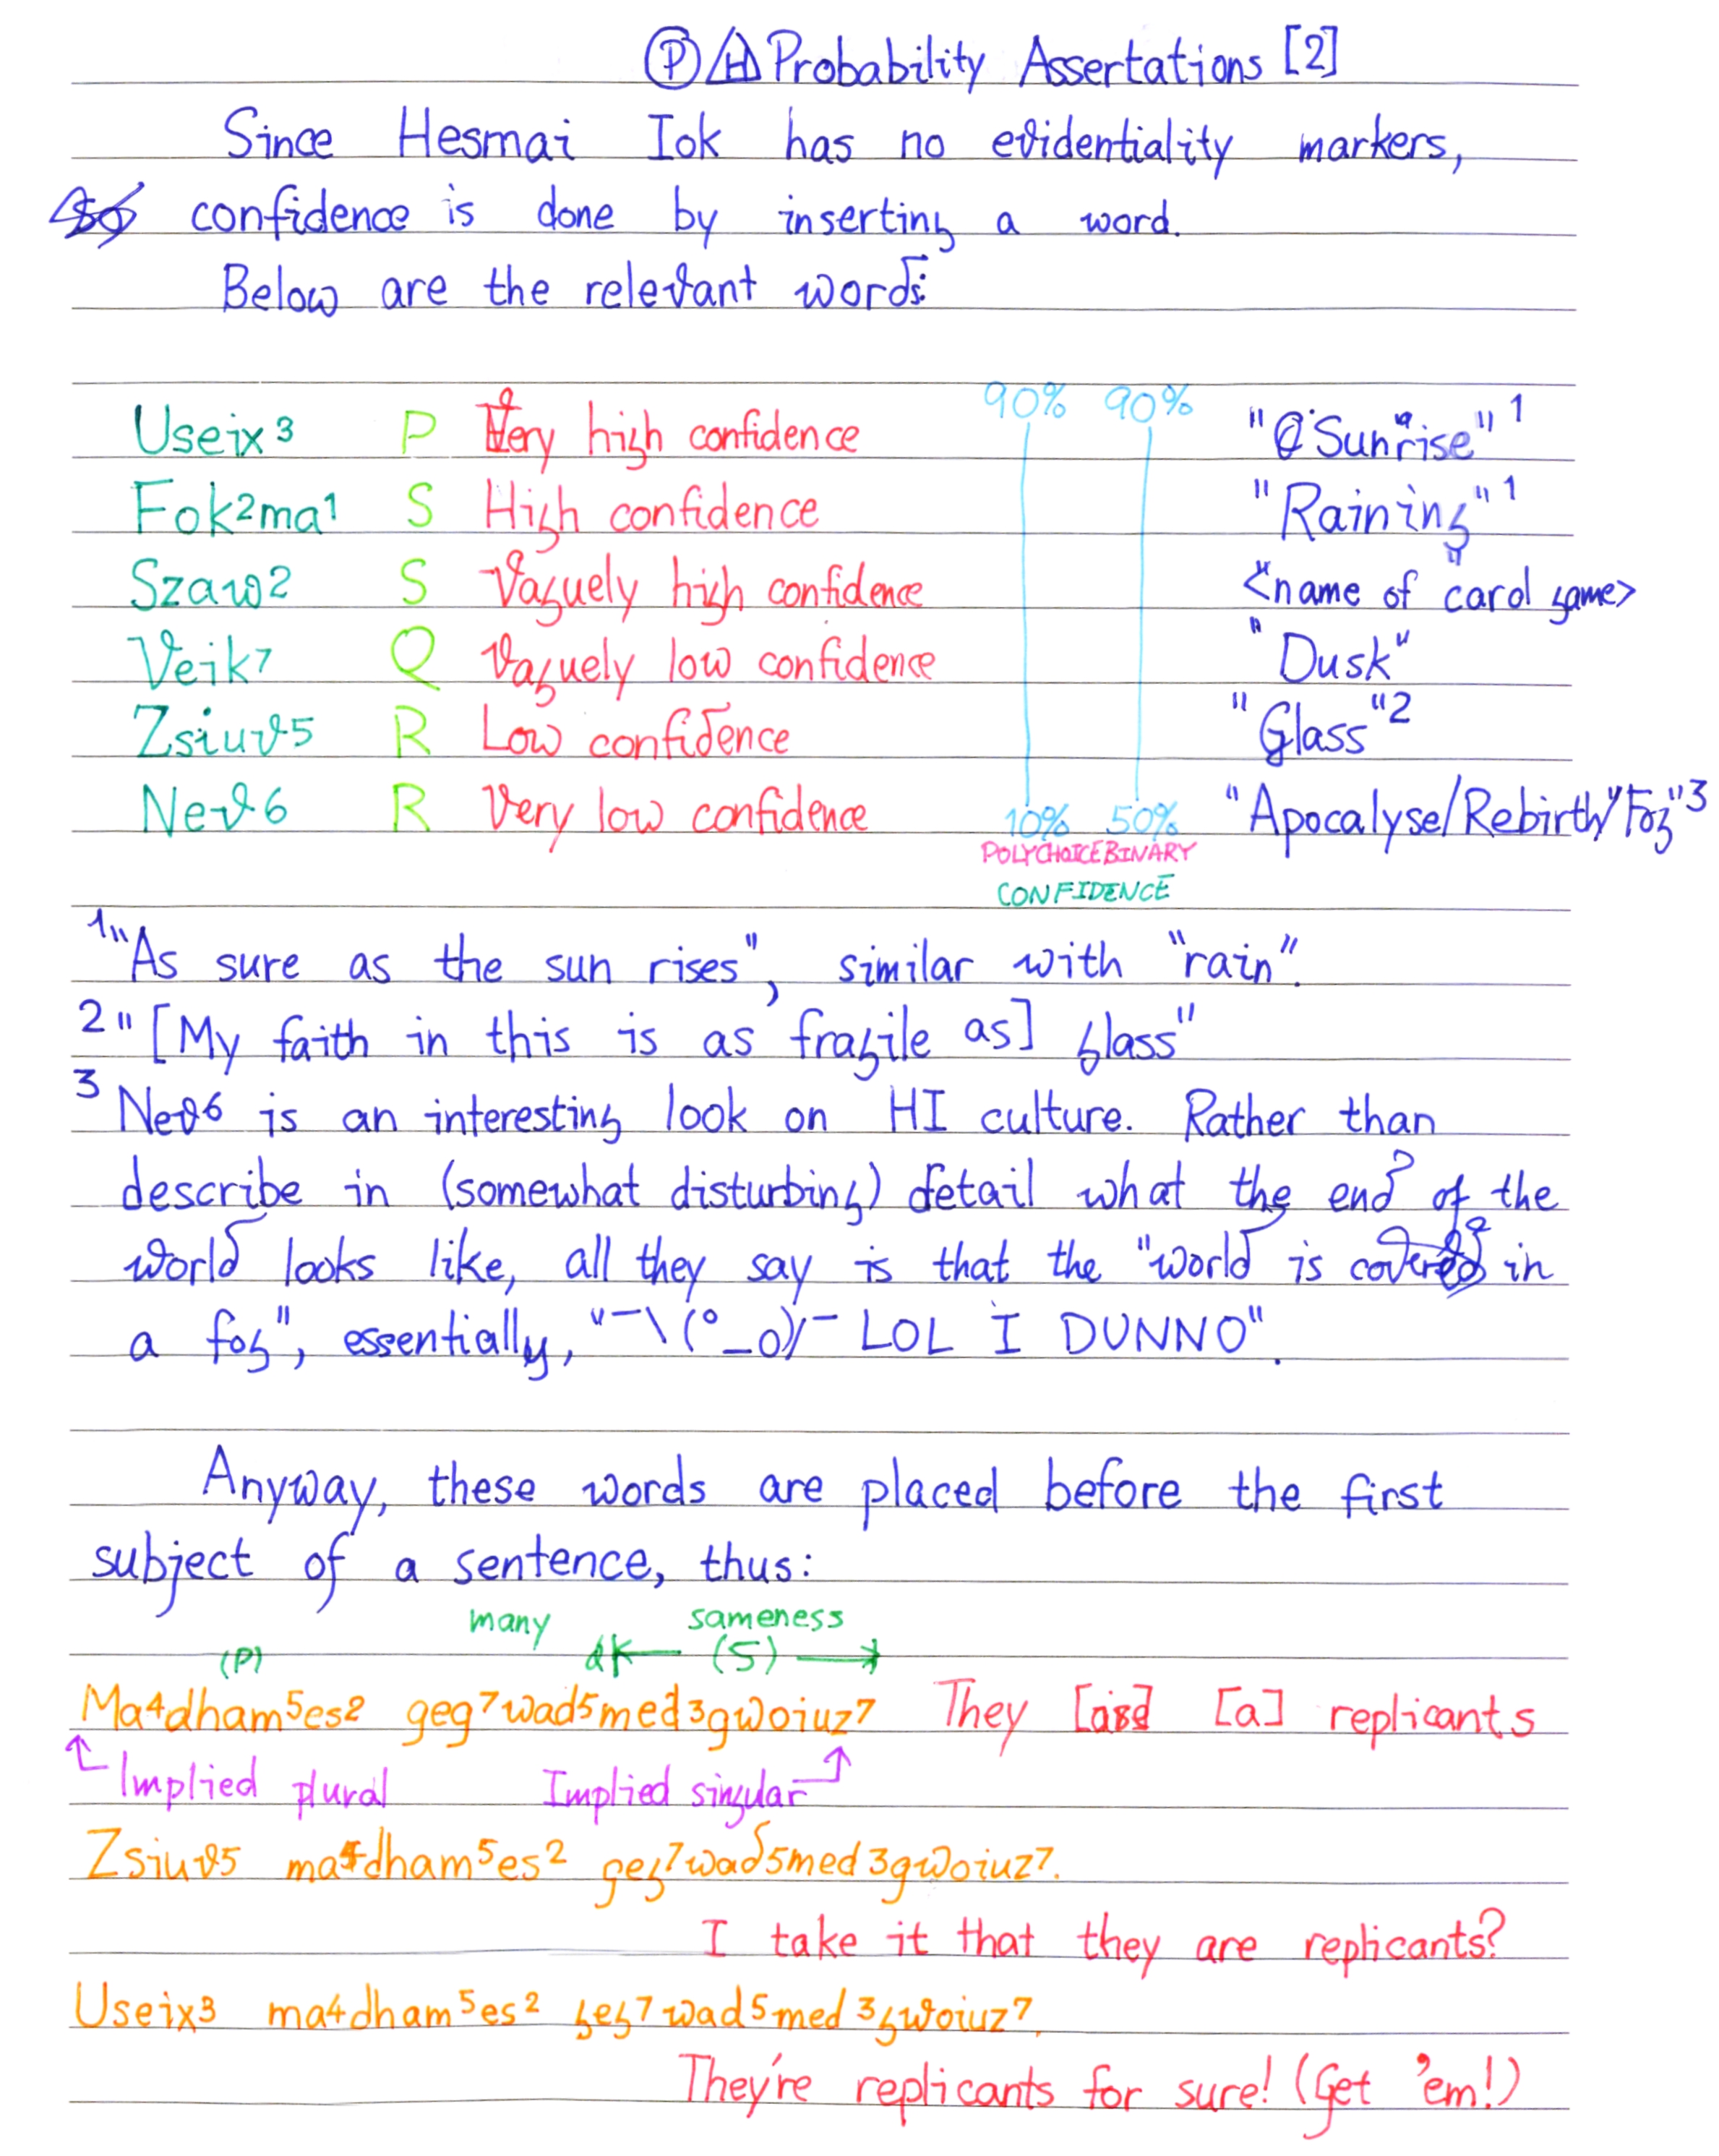 Ⓟ Probability Assertations [2]
Since Hesmai Iok has no evidentiality markers,
confidence is done by inserting a word.
Below are the relevant words:
90% 90%
Useix3 P Very high confidence "Sunrise" 1
Fok2ma1 S High confidence "Raining" 1
Szaw2 S Vaguely high confidence <name of card game>
Veik7 Q Vaguely low confidence "Dusk"
Zsiuv5 R Low confidence "Glass" 2
Nev6 R Very low confidence 10% 50% "Apocalyse/Rebirth/Fog" 3
POLYCHOICE BINARY
CONFIDENCE
1 "As sure as the sun rises", similar with "rain".
2 "[My faith in this is as fragile as] glass"
3 Nev6 is an interesting look on HI culture. Rather than
describe in (somewhat disturbing) detail what the end of the
world looks like, all they say is that the "world is covered in
a fog", essentially, "¯\(°_o)/¯ LOL I DUNNO".
Anyway, these words are placed before the first
subject of a sentence, thus:
many sameness
(P) (S)
Ma4dham5es2 geg7wad5med3gwoiuz7 They [are] [a] replicants
Implied plural Implied singular
Zsiuv5 ma4dham5es2 geg7wad5med3gwoiuz7.
I take it that they are replicants?
Useix3 ma4dham5es2 geg7wad5med3gwoiuz7.
They're replicants for sure! (Get 'em!)